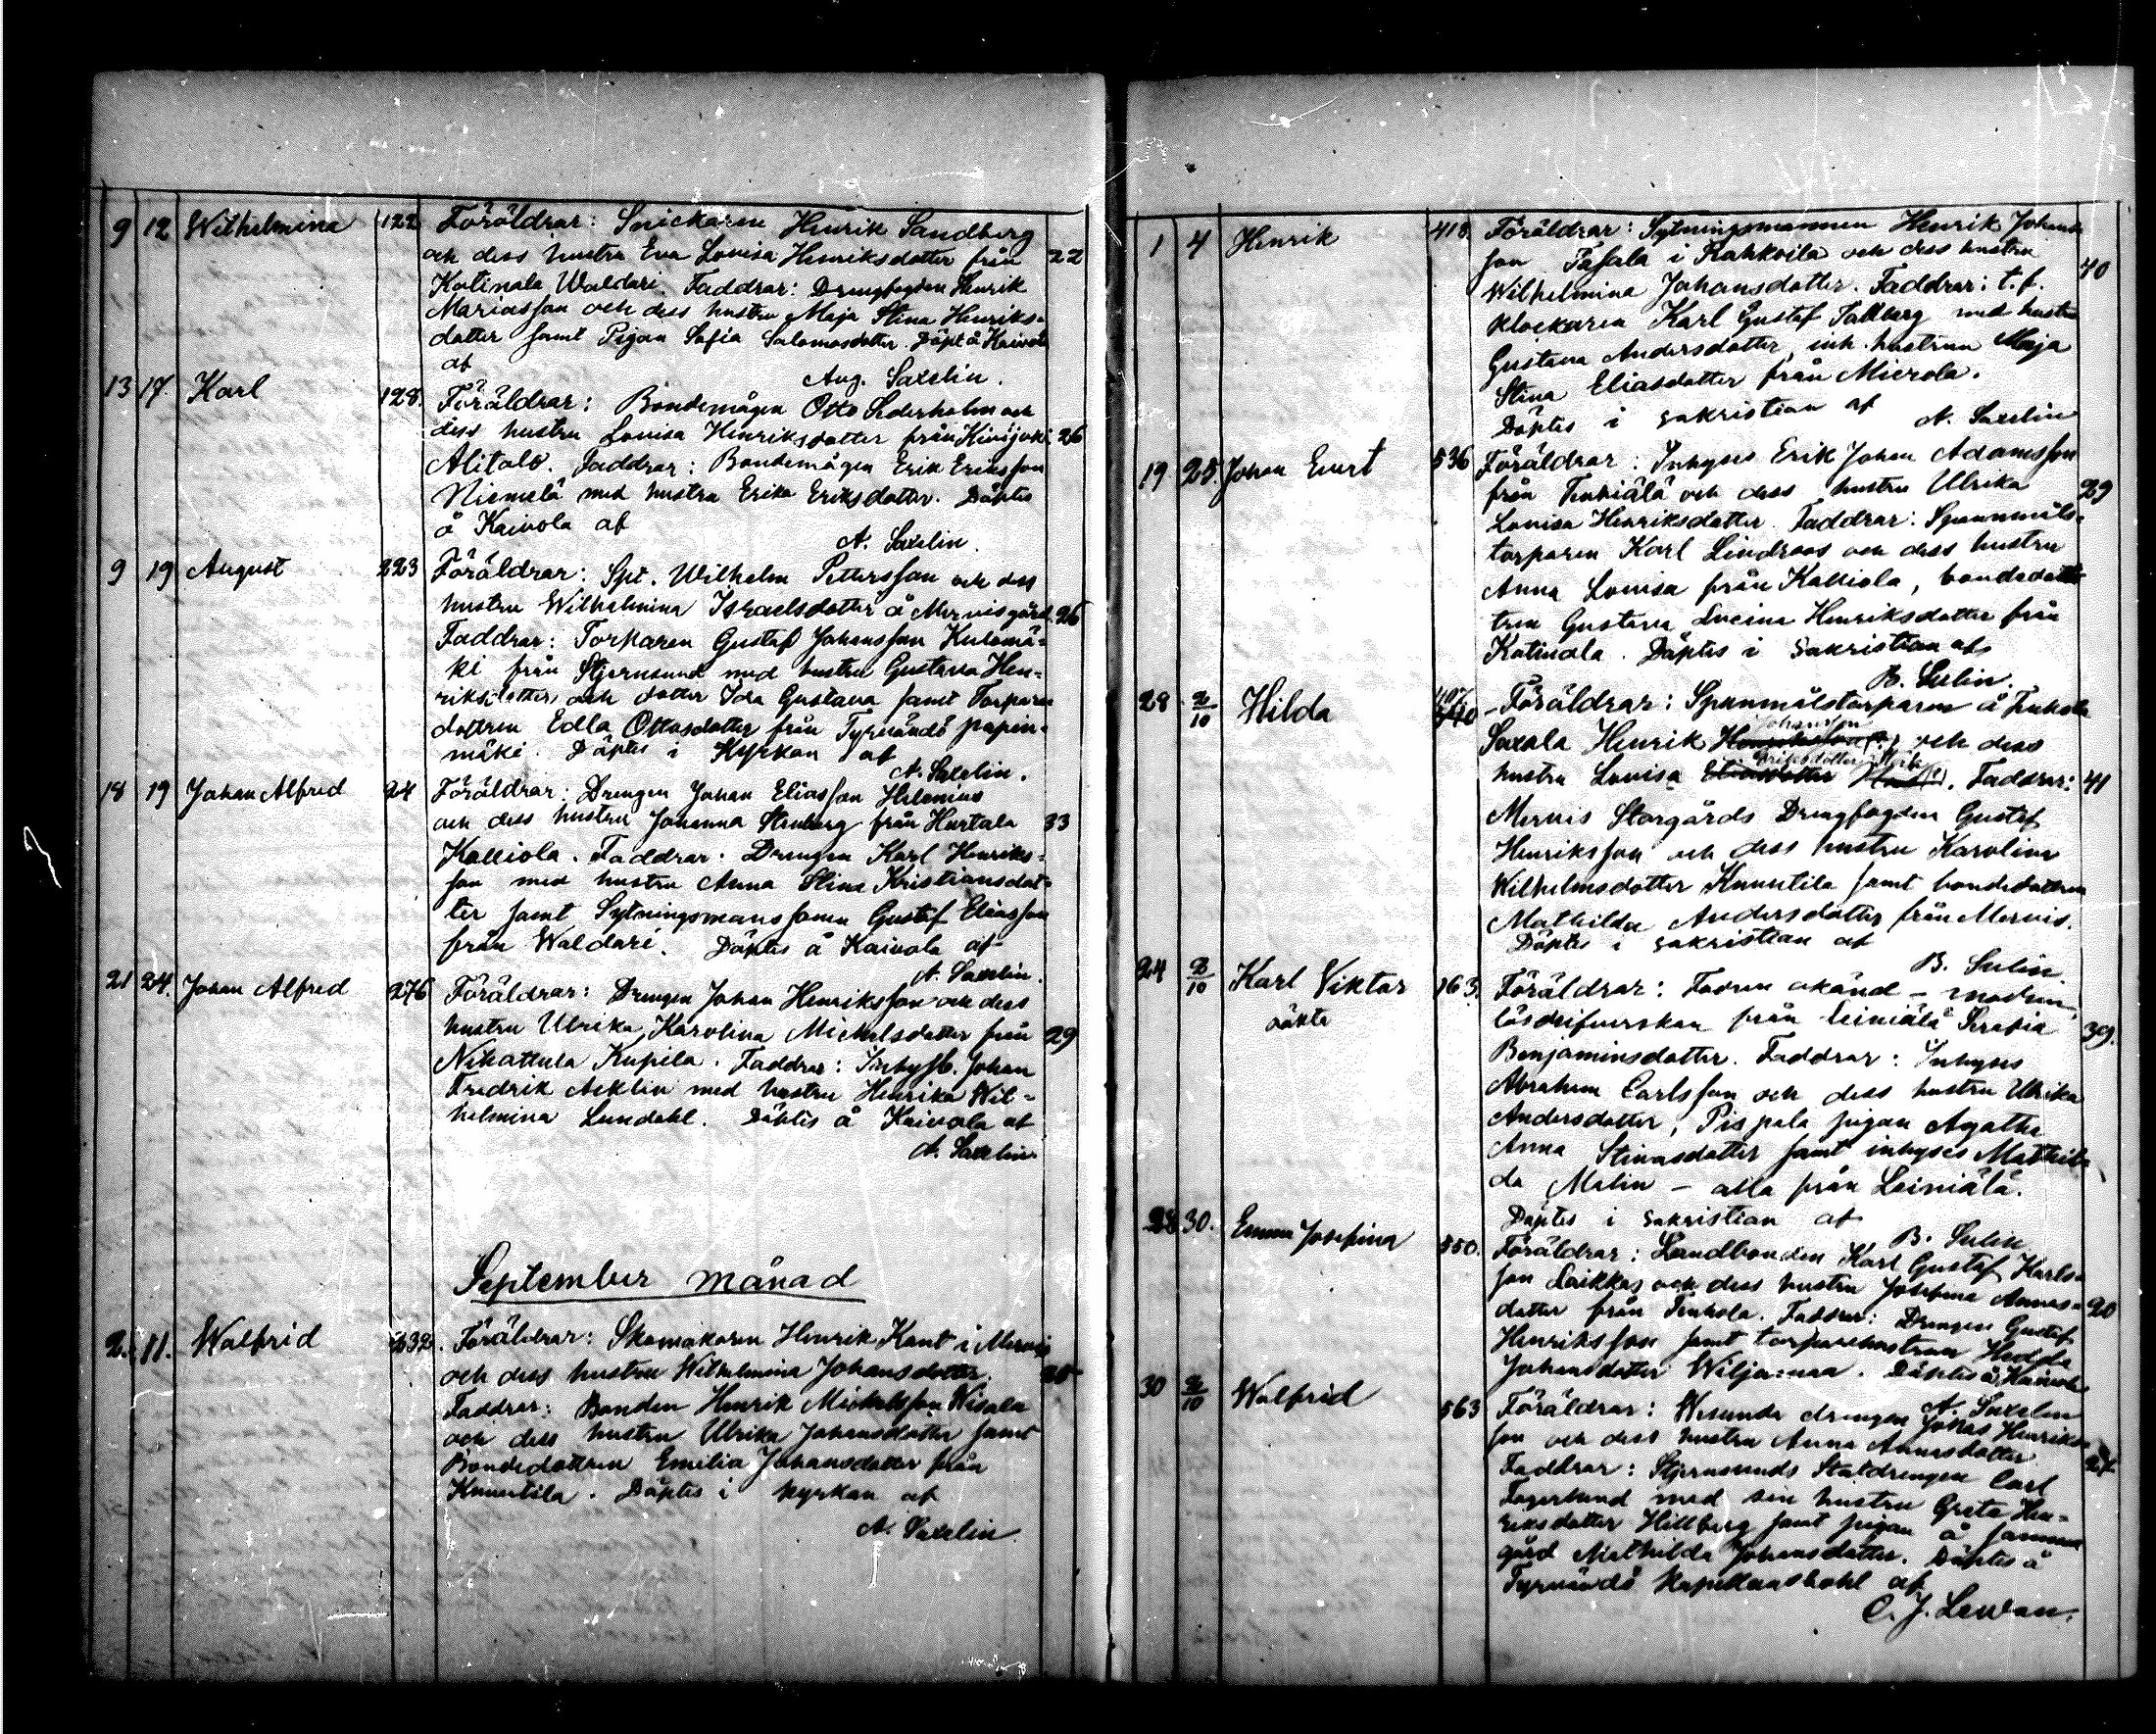 9 12 Wilhelmina 122 Föräldrar: Snickaren Henrik Sandberg
och dess hustru Eva Lovisa Henriksdotter från 22
Katinala Waldari. Faddrar: Drengfogden Henrik
Mariasson och dess hustru Maja Stina Henriks-
dotter samt Pigan Sofia Salomosdotter. Döpt å Kaivola
af
Aug. Saxelin.
13 17. Karl 128. Föräldrar: Bondemågen Otto Sederholm och
dess hustru Lovisa Henriksdotter från Kivijoki 26
Alitalo. Faddrar: Bondemågen Erik Eriksson
Niemelä med hustru Erika Eriksdotter. Döptes
å Kaivola af
A. Saxelin.
9 19 August 223 Föräldrar: Spt. Wilhelm Pettersson och dess
hustru Wilhelmina Israelsdotter å Mervisgård. 26
Faddrar: Torparen Gustaf Johansson Kulomä-
ki från Stjernsund med hustru Gustava Hen-
riksdotter, och dotter Ida Gustava samt Torpare
dottren Edla Ottosdotter från Tyrvändö papin-
mäki. Döptes i Kyrkan af
A. Saxelin.
18 19 Johan Alfred 24 Föräldrar: Drengen Johan Eliasson Helenius
och dess hustru Johanna Stenberg från Hurtala 33
Kalliola. Faddrar: Drengen Karl Henriks-
son med hustru Anna Stina Kristiansdot-
ter samt Sytningsmanssonen Gustaf Eliasson
från Waldari. Döptes å Kaivola af
A. Saxelin.
21 24. Johan Alfred 276 Föräldrar: Drengen Johan Henriksson och dess
hustru Ulrika Karolina Mickelsdotter från 29
Nikattula Kupila. Faddrar: Inhyses. Johan
Fredrik Acklin med hustru Henrika Wil-
helmina Lundahl. Döptes å Kaivola af
A. Saxelin.
September månad
2. 11. Walfrid 232. Föräldrar: Skomakaren Henrik Kant i Mervis
och dess hustru Wilhelmina Johansdotter.
Faddrar: Bonden Henrik Mickelsson Wisala
och dess hustru Ulrika Johansdotter samt
Bondedottren Emilia Johansdotter från
Knuutila. Döptes i kyrkan af
A. Saxelin
1 4 Henrik 418. Föräldrar: Sytningsmannen Henrik Johans-
son Tafala i Rahkoila och dess hustru 40
Wilhelmina Johansdotter. Faddrar: t.f.
klockaren Karl Gustaf Tallberg med hustru
Gustava Andersdotter, inh. hustrun Maja
Stina Eliasdotter från Mierola.
Döptes i sakristian af A. Saxelin
19 25. Johan Evert 536 Föräldrar: Inhyses Erik Johan Adamsson
från Tenhiälä och dess hustru Ulrika 29
Lovisa Henriksdotter. Faddrar: Spannmåls-
torparen Karl Lindroos och dess hustru
Anna Lovisa från Kalliola, bondedot-
tren Gustava Lucina Henriksdotter från
Katinala. Döptes i Sakristian af
B. Sulin.
28 2/10 Hilda 540 Föräldrar: Spanmålstorparen å Tenhola
Saxala Henrik Johansson och dess
hustru Lovisa Eriksdotter. Faddrar: 41
Mervis Storgårds Drengfogden Gustaf
Henriksson och dess hustru Karolina
Wilhelmsdotter Knuutila samt bondedottren
Mathilda Andersdotter från Mervis.
Döptes i sakristian af
B. Sulin
24 2/10 Karl Viktor 163. Föräldrar: Fadren okänd – modren
oäkta lösdrifverskan från Leiniälä Serafia 39.
Benjaminsdotter. Faddrar: Inhyses
Abraham Carlsson och dess hustru Ulrika
Andersdotter, Pispala pigan Agatha
Anna Stinasdotter samt inhyses Mathil-
da Malin – alla från Leiniälä.
Döptes i sakristian af
B. Sulin
28 30. Emma Josefina 550. Föräldrar: Landbonden Karl Gustaf Karls-
son Laikkas och dess hustru Josefina Annas-
dotter från Tenhola. Faddrar: Drengen Gustaf 20
Henriksson samt torparehustrun Hedda
Johansdotter Wiljamaa. Döptes å Kaivola
A. Saxelin
30 2/10 Walfrid 563 Föräldrar: Wesunda drengen Johan Henriks-
son och dess hustru Anna Annasdotter 27
Faddrar: Stjernsunds Staldrengen Carl
Fagerlund med sin hustru Greta Hen-
riksdotter Hillberg samt pigan å samma
gård Mathilda Johansdotter. Döptes å
Tyrvändö Kapellansbohl af
C. J. Lewan.